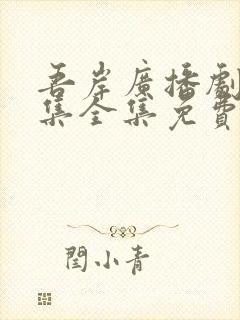 吾岸廣播劇
集全集免費
閆小青